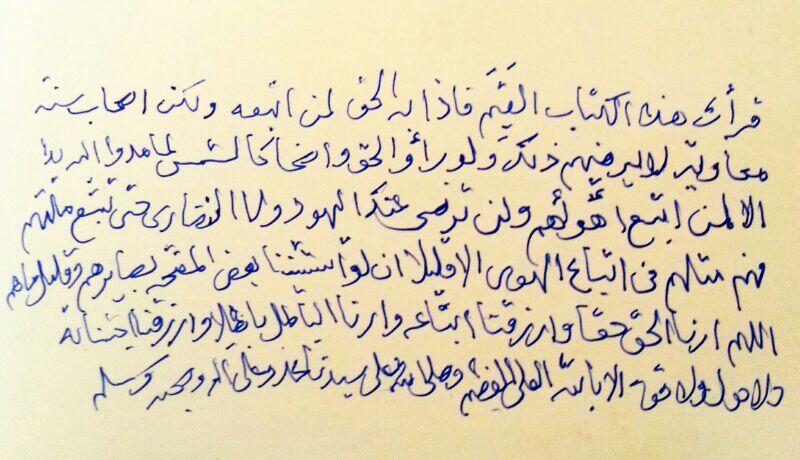 قرأت هذا الكتاب القَيَّم فإذا به الحق لمن اتبعه ولكن أصحاب سنة
معاوية لا يرضيهم ذلك ولو رأوا الحق واضحا كالشمس لما مدوا اليد يدا
الا لمن اتبع أهوائهم ولن ترضى عنك اليهود ولا النصارى حتى تتبع ملتهم
فهم مثلهم في اتباع الهوى الا قليلا ان لو استثنينا بعض المفتحه بصايرهم وقليل ماهم
اللهم ارنا الحق حقا وارزقنا اتباعه وارنا الباطل باطلا وارزقنا اجتنابه
ولا حول ولا قوة الا بالله العلي العظيم وصلى الله على سيدنا محمد وعلى آله وصحبه وسلم